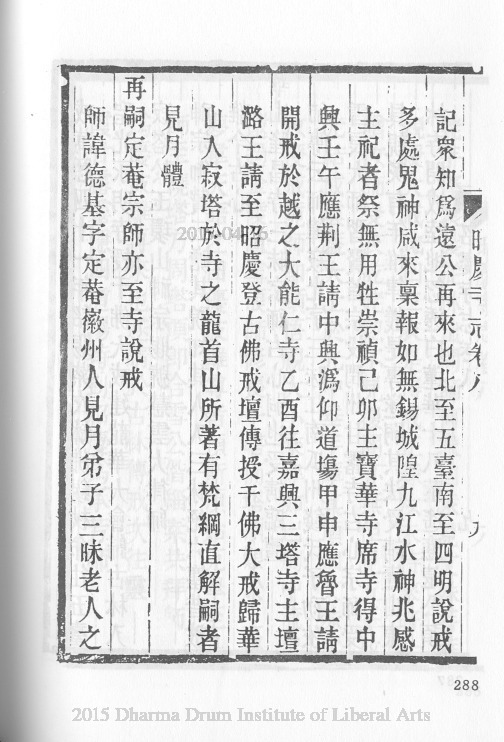 記衆知爲遠公再來也北至五臺南至四明說戒
多處鬼神咸來稟報如無錫城隍九江水神兆感
主祀者祭無用牲崇禎己卯主寶華寺席寺得中
興壬午應荆王請中興潙仰道塲甲申應魯王請
開戒於越之大能仁寺乙酉往嘉興三塔寺主壇
潞王請至昭慶登古佛戒壇傳授千佛大戒歸華
山入寂塔於寺之龍首山所著有梵綱直解嗣者
見月體
再嗣定菴宗師亦至寺說戒
師諱德基字定菴徽州人見月弟子三昧老人之
288
2015 Dharma Drum Institute of Liberal Arts